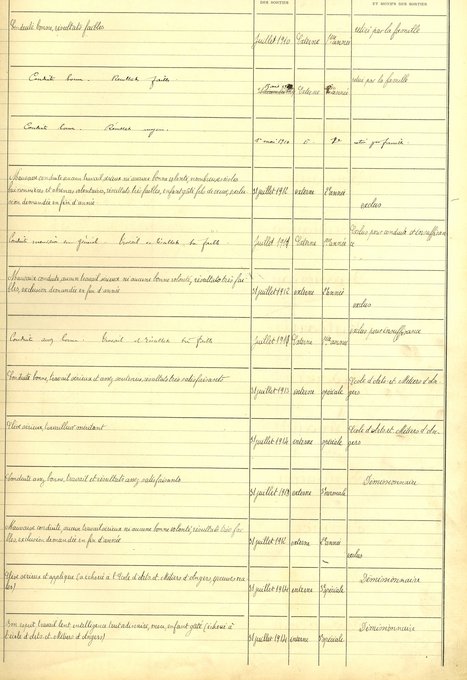 DES SORTIES
ET MOTIFS DES SORTIES
Conduite bonne, résultats faibles
Juillet 1910 Externe 1ère année retiré par la famille
Conduite bonne. Résultats faibles
Externe année retiré par la famille
Conduite bonne. Résultats moyens.
mai 1910
Mauvaise conduite aucun travail sérieux ni aucune bonne volonté, nombreuses
et absences volontaires, résultats très faibles, enfant gâté fils de veuve, exclu
sion demandée en fin d'année
31 juillet 1912 externe 2e année exclus
Conduite mauvaise en général. travail et résultats très faibles.
Juillet Externe année Exclus pour conduite et insuffisan
ce
Mauvaise conduite, aucun travail sérieux ni aucune bonne volonté, résultats très fai
bles, exclusion demandée en fin d'année
31 juillet 1912 externe année exclus
Conduite assez bonne. travail et résultats très faibles
Juillet Externe année exclus pour insuffisance
Conduite bonne, travail sérieux et assez soutenu, résultats très satisfaisants
31 juillet 1913 externe spéciale École d'Arts et Métiers d'An
gers
Élève sérieux, travailleur
31 juillet 1914 interne spéciale École d'Arts et Métiers d'An
gers
Conduite assez bonne, travail et résultats assez satisfaisants
31 juillet 1919 externe normale Démissionnaire
Mauvaise conduite, aucun travail sérieux ni aucune bonne volonté, résultats très fai
bles, exclusion demandée en fin d'année
31 juillet 1912 externe 2e année exclus
Élève sérieux et appliqué (a échoué à l'École d'Arts et Métiers d'Angers,
31 juillet 1914 externe spéciale Démissionnaire
Bon esprit travail lent intelligence enfant gâté (échoué à
École d'Arts et Métiers d'Angers)
31 juillet 1914 interne spéciale Démissionnaire